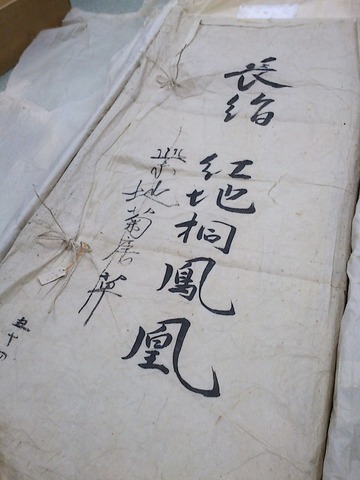 長絹
紅地桐鳳凰
紫地菊唐草
五十四